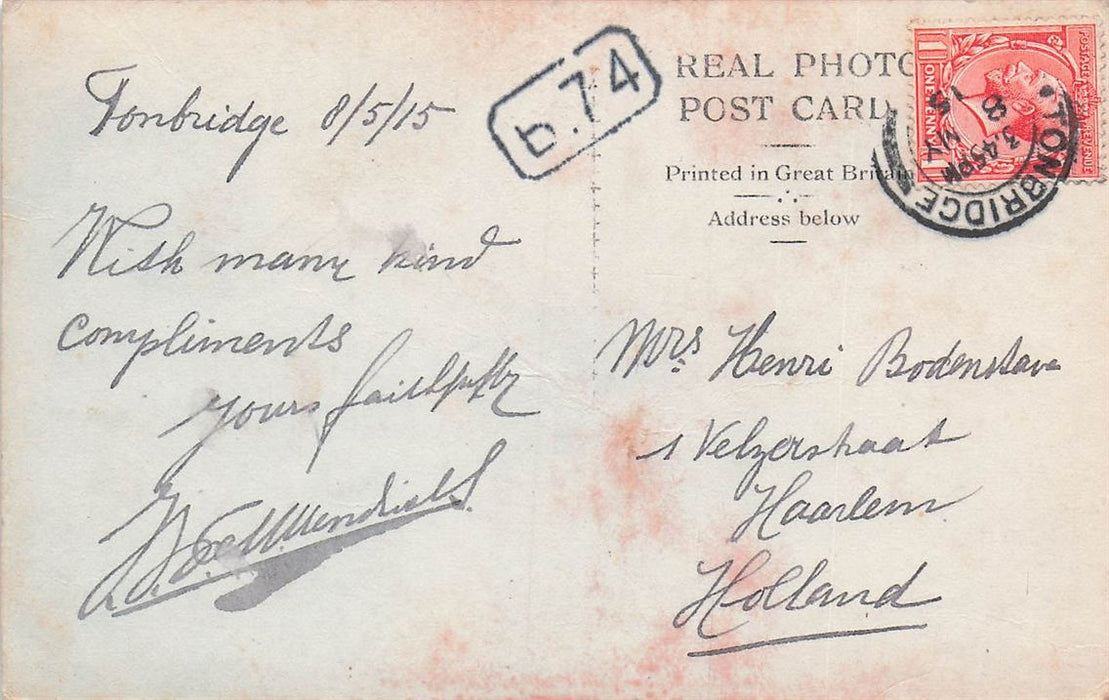 Tonbridge 8/5/15
With many kind
compliments
yours faithfully
P.74
REAL PHOTO
POST CARD
Printed in Great Britain
Address below
POSTAGE REVENUE
ONE PENNY
TONBRIDGE
3.45 PM
8 MY
15
Mrs Henri Bodenstave
1 Velzerstraat
Haarlem
Holland